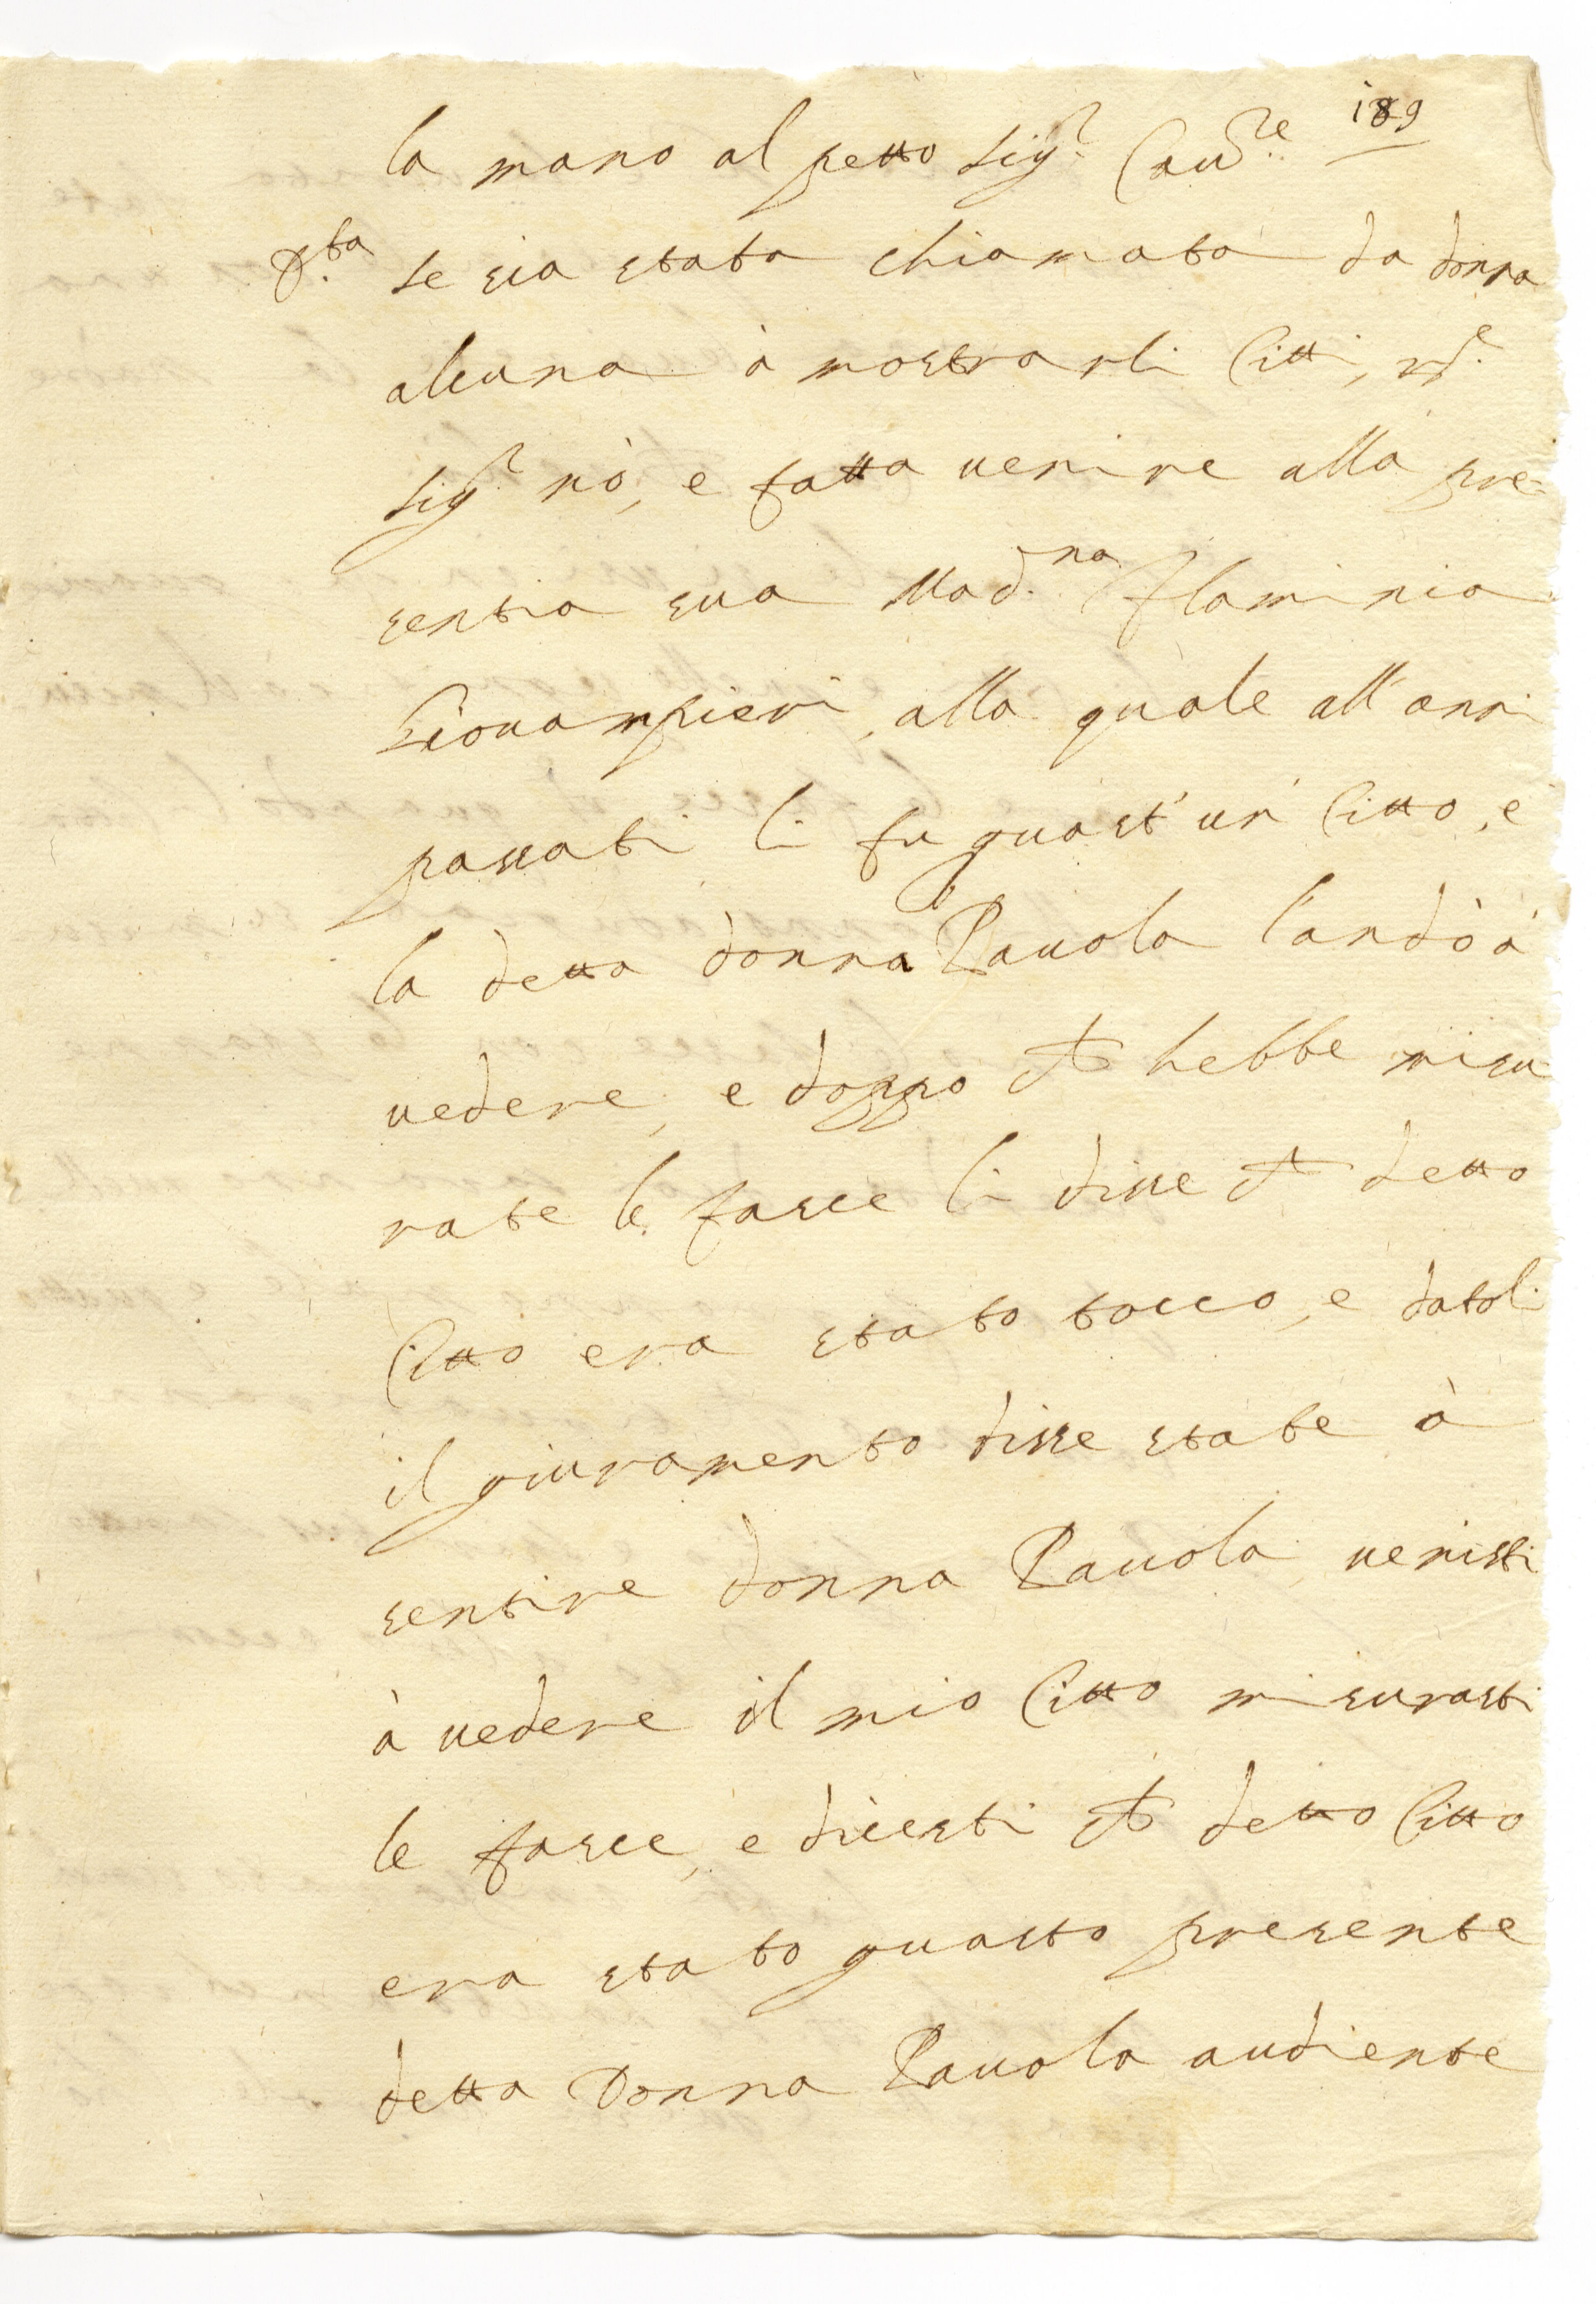 189
la mano al petto Sig.r Cau.re
D.ta se sia stata chiamata da donna
alcuna à mostrarli Citti, rs.e
Sig.r nò, e fatta uenire alla pre-
sentia sua Mad.na Flaminia
Giouampieri, alla quale all'anni
passati li fu guast'un Citto, e
la detta donna Pauola l'andò à
uedere, e doppo ch hebbe misu
rate le fasce li disse ch detto
Citto era stato tocco, e datoli
il giuramento disse state à
sentire donna Pauola, uenisti
à uedere il mio Citto misurasti
le fasce, e dicesti ch detto Citto
era stato guasto presente
detta Donna Pauola audiente